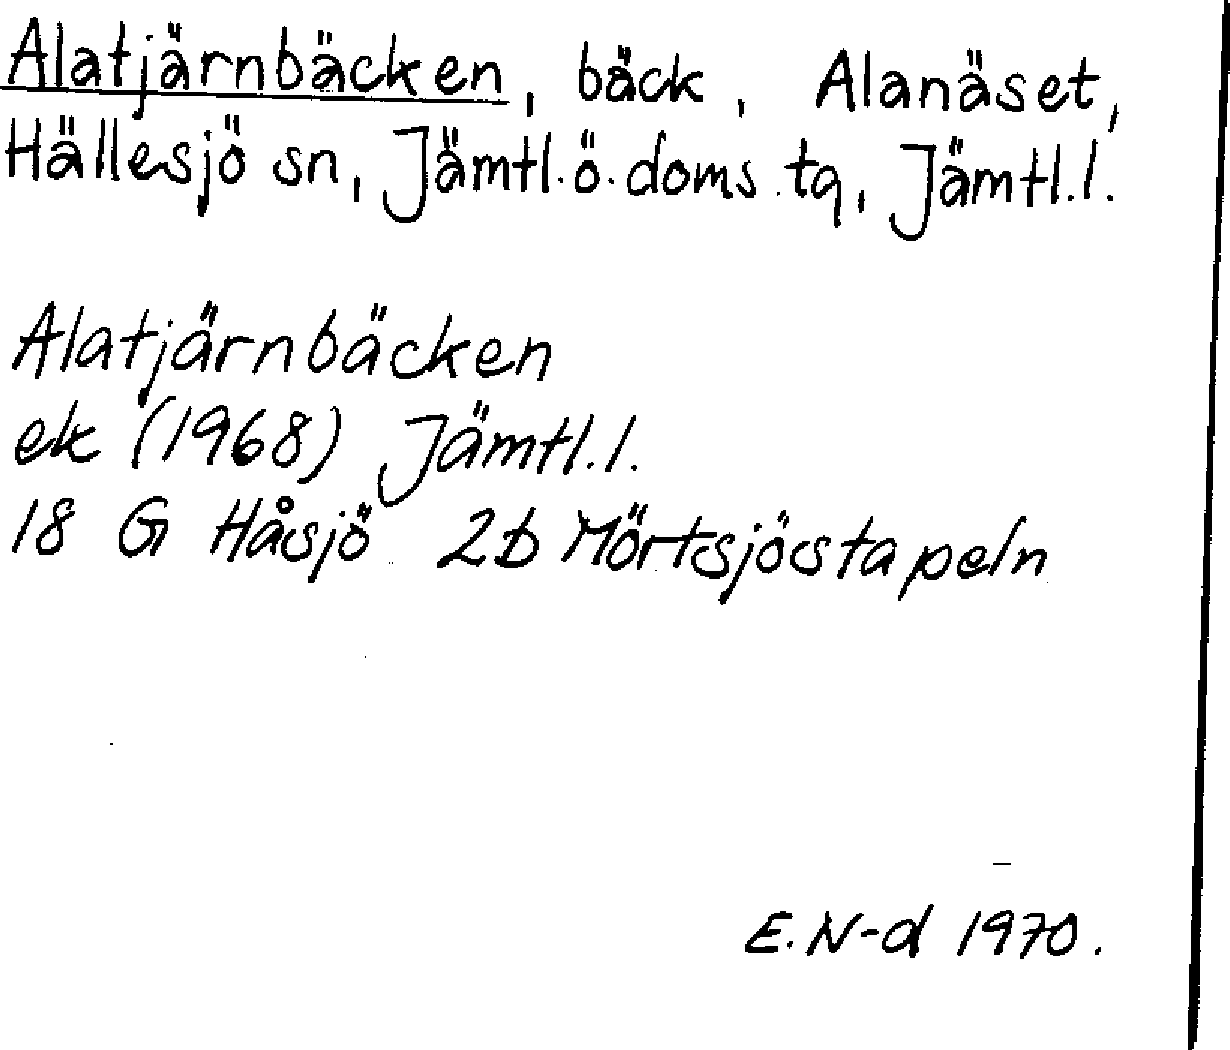 Alatjärnbäcken, bäck, Alanäset,
Hällesjö sn, Jämtl.ö.doms.tg, Jämtl.l.
Alatjärnbäcken
ek (1968) Jämtl.l.
18 G Håsjö 2b Mörtsjöstapeln
E.N-d 1970.